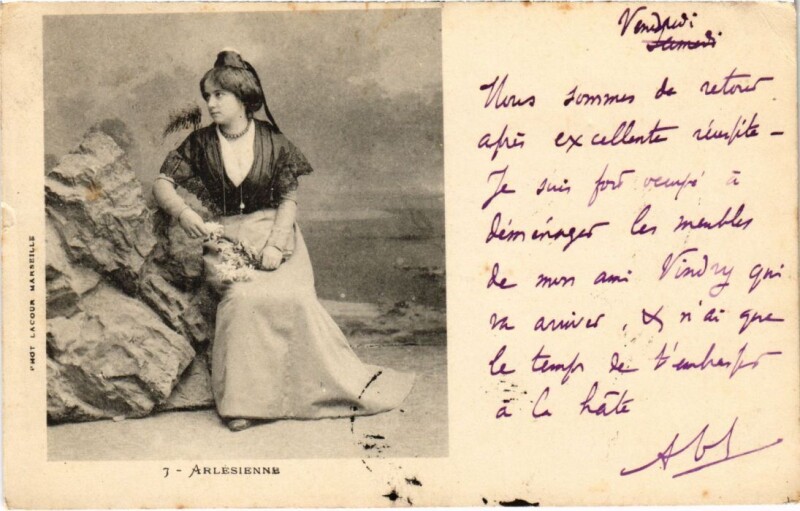 PHOT LACOUR MARSEILLE
7 - ARLÉSIENNE
Vendredi
Samedi
Nous sommes de retour
après excellente réussite —
Je suis fort occupé à
déménager les meubles
de mon ami Vindry qui
va arriver, & n'ai que
le temps de t'embrasser
à la hâte